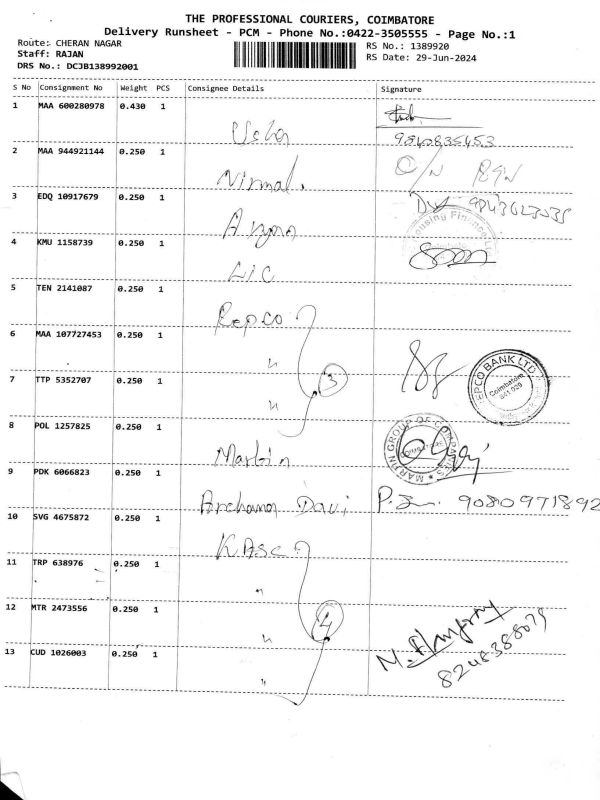 THE PROFESSIONAL COURIERS, COIMBATORE
Delivery Runsheet - PCM - Phone No.:0422-3505555 - Page No.:1
Route: CHERAN NAGAR
RS No.: 1389920
Staff: RAJAN
RS Date: 29-Jun-2024
DRS No.: DCJB138992001
S No Consignment No Weight PCS Consignee Details Signature
1 MAA 600280978 0.430 1
Usha
9840835453
2 MAA 944921144 0.250 1
Nirmal.
3 EDQ 10917679 0.250 1
4 KMU 1158739 0.250 1
LIC
5 TEN 2141087 0.250 1
Repco
6 MAA 107727453 0.250 1
"
7 TTP 5352707 0.250 1
" 3
REPCO BANK LTD
Coimbatore
8 POL 1257825 0.250 1
Martin
MARTIN GROUP OF COMPANIES
9 PDK 6066823 0.250 1
Archana Davi 9080971892
10 SVG 4675872 0.250 1
KASC
11 TRP 638976 0.250 1
"
12 MTR 2473556 0.250 1
" 4
13 CUD 1026003 0.250 1
"
8248388079